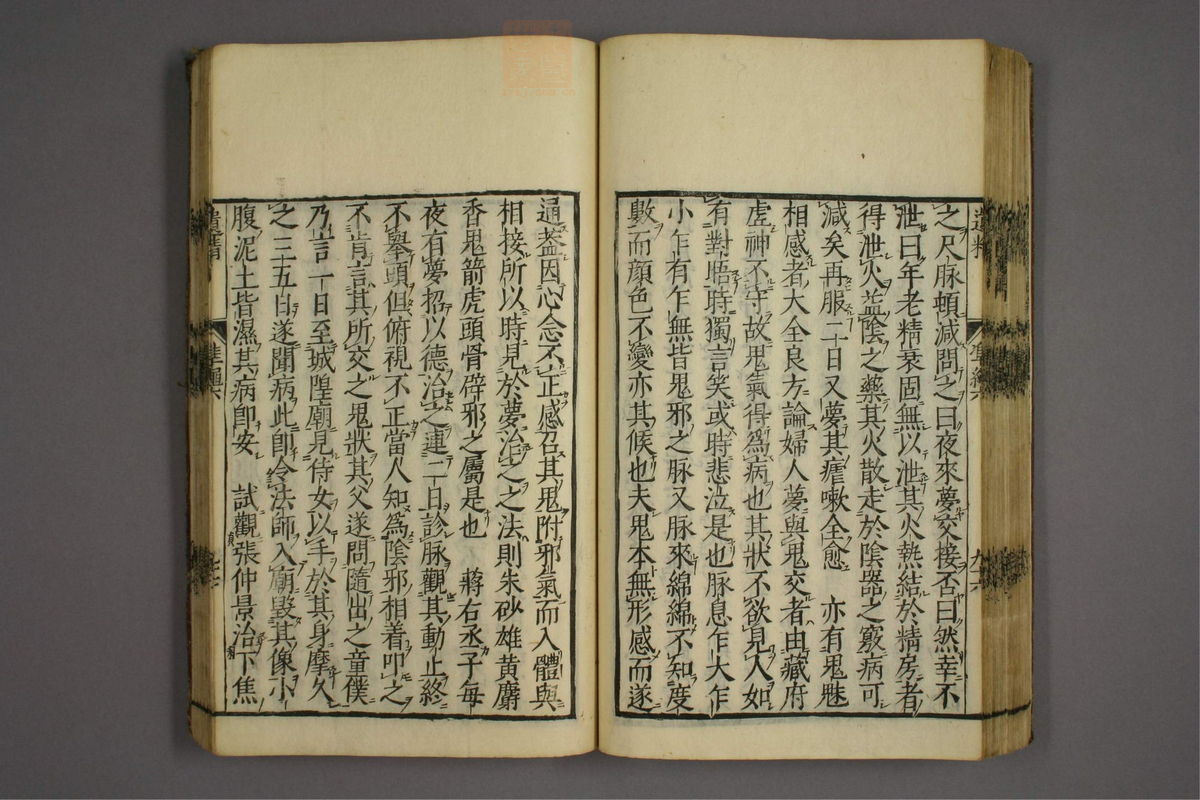 之尺脉頓減問之曰夜來夢交接否曰然幸不
泄曰年老精衰固無以泄其火熱結於精房者
得泄火益陰之藥其火散走於陰器之竅病可
減矣再服二日又夢其瘧嗽全愈　亦有鬼魅
相感者大全良方論婦人夢與鬼交者由藏府
虛神不守故鬼氣得爲病也其狀不欲見人如
有對晤時獨言笑或時悲泣是也脉息乍大乍
小乍有乍無皆鬼邪之脉又脉來綿綿不知度
數而顔色不變亦其候也夫鬼本無形感而遂
通蓋因心念不正感召其鬼附邪氣而入體與
相接所以時見於夢治之之法則朱砂雄黄麝
香鬼箭虎頭骨辟邪之屬是也　蔣右丞子每
夜有夢招以德治之連二日診脉觀其動止終
不舉頭但俯視不正當人知爲陰邪相着叩之
不肯言其所交之鬼狀其父遂問隨出之童僕
乃言一日至城隍廟見侍女以手於其身摩久
之三五日遂聞病此即令法師入廟毀其像小
腹泥土皆濕其病即安　試觀張仲景治下焦